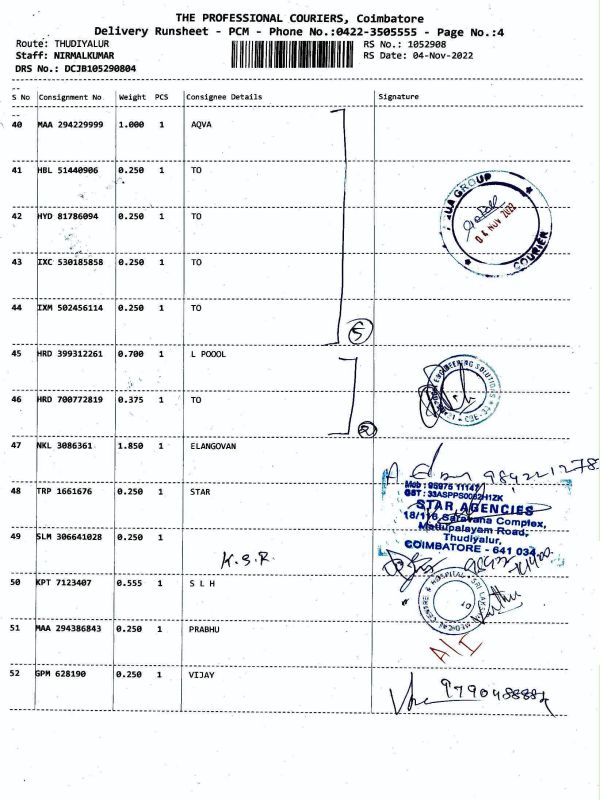 THE PROFESSIONAL COURIERS, Coimbatore
Delivery Runsheet - PCM - Phone No.:0422-3505555 - Page No.:4
Route: THUDIYALUR RS No.: 1052908
Staff: NIRMALKUMAR RS Date: 04-Nov-2022
DRS No.: DCJB105290804
S No Consignment No Weight PCS Consignee Details Signature
40 MAA 294229999 1.000 1 AQVA
41 HBL 51440906 0.250 1 TO
42 HYD 81786094 0.250 1 TO
43 IXC 530185858 0.250 1 TO
44 IXM 502456114 0.250 1 TO
5
45 HRD 399312261 0.700 1 L POOOL
46 HRD 700772819 0.375 1 TO
2
47 NKL 3086361 1.850 1 ELANGOVAN
48 TRP 1661676 0.250 1 STAR
49 SLM 306641028 0.250 1
K.S.R.
50 KPT 7123407 0.555 1 S L H
51 MAA 294386843 0.250 1 PRABHU
52 GPM 628190 0.250 1 VIJAY
GROUP
04 NOV 2022
COURIER
ENGINEERING SOLUTIONS
Mob : 95975 11147
STAR AGENCIES
18/116, Saravana Complex,
Mettupalayam Road,
Thudiyalur,
COIMBATORE - 641 034.
MEDICAL CENTRE & HOSPITAL
A/I